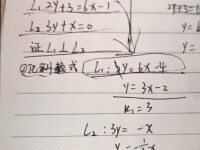 L₁ 2y+3=6x-1
L₂ 3y+x=0
证 L₁⊥L₂
化斜截式 L₁: 2y=6x-4
y=3x-2
k₁=3
L₂: 3y=-x
2y+3=
y=
y=